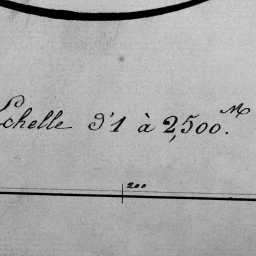 Echelle d'1 à 2,500.M
200